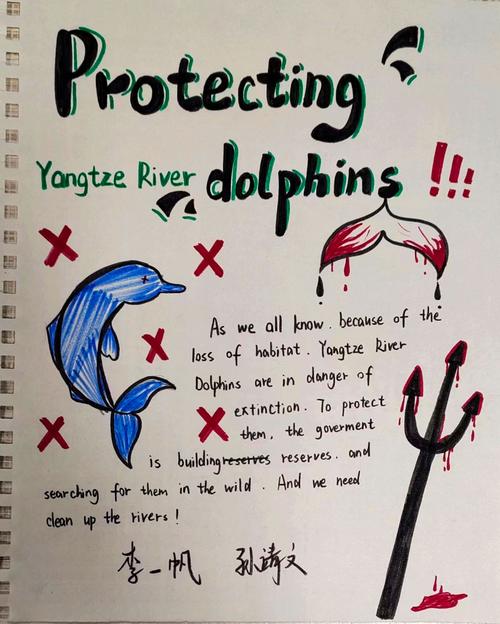 Protecting
Yangtze River dolphins !!!
As we all know. because of the
loss of habitat. Yangtze River
Dolphins are in danger of
extinction. To protect
them, the goverment
is building reserves reserves. and
searching for them in the wild. And we need
clean up the rivers!
李一帆 孙靖文